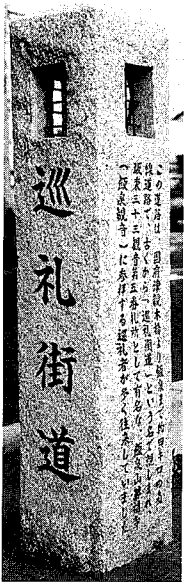 巡礼街道
この道路は、国府津親木橋より飯泉まで約四キロの直
線道路で、古くから「巡礼街道」という名で親しまれ
坂東三十三観音第五番札所として有名な、飯泉山勝福寺
(飯泉観音)に参拝する巡礼者が多く往来していました